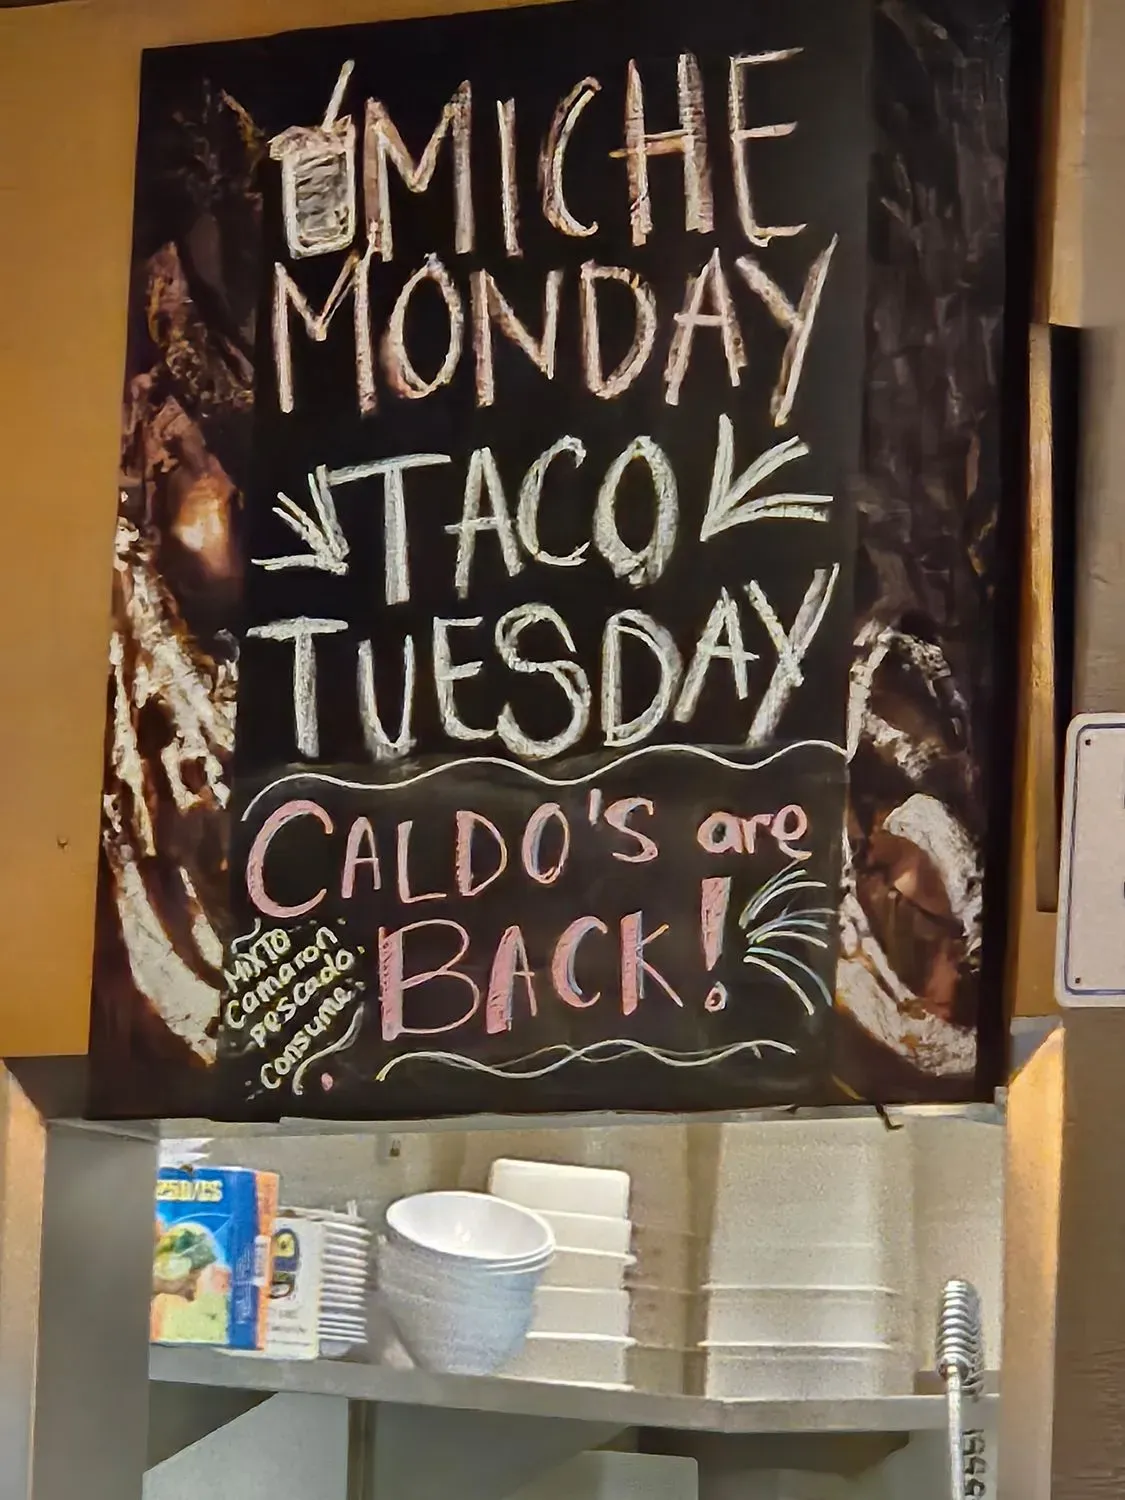 MICHE
MONDAY
TACO
TUESDAY
CALDO'S are
BACK!
MIXTO
Camaron
pescado
consume